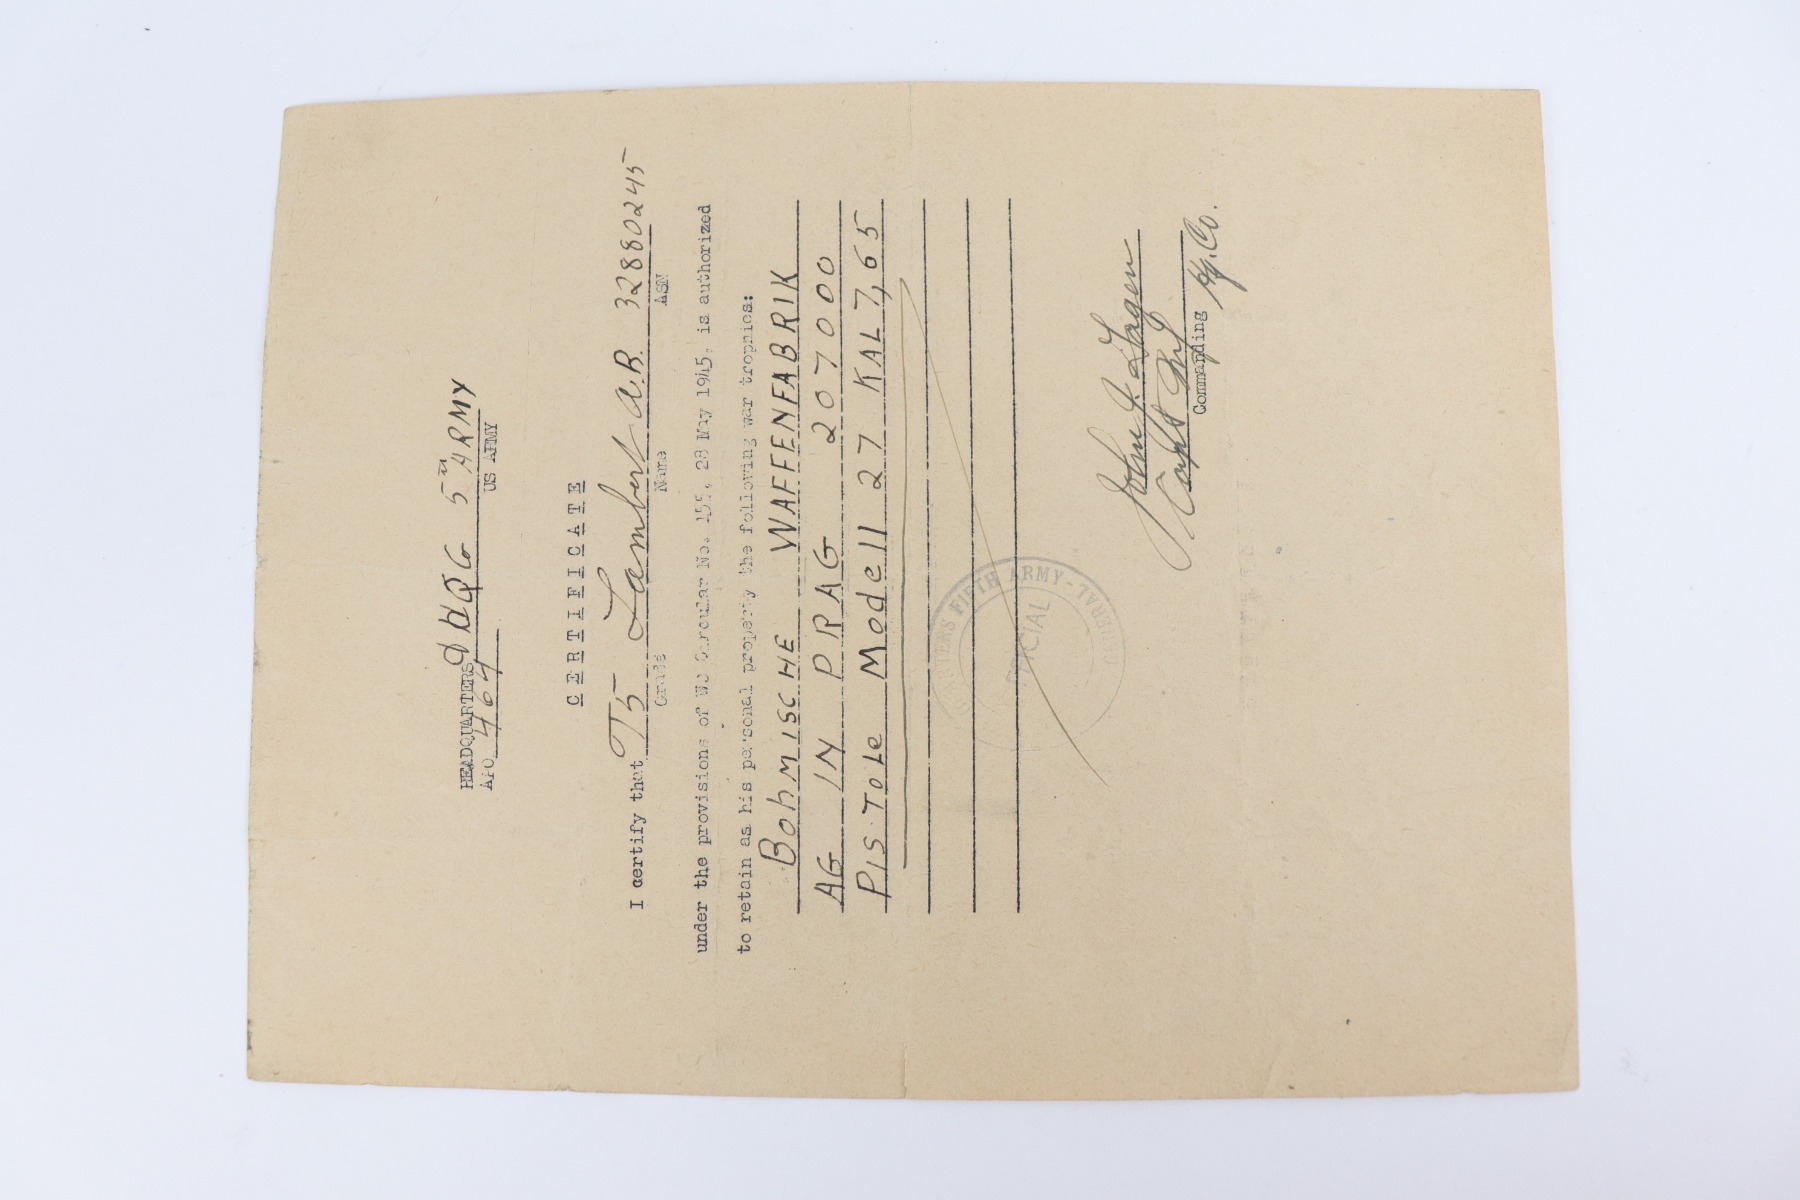 HEADQUARTERS HQ Co 5TH ARMY
APO 464 US ARMY
CERTIFICATE
I certify that T5 Lambert A.R. 32880245
Grade Name ASN
under the provisions of WD Circular No. 155, 28 May 1945, is authorized
to retain as his personal property the following war trophies:
BohMISCHE WAFFENFABRIK
AG IN PRAG 207000
PISTOLE Modell 27 KAL 7,65
HEADQUARTERS FIFTH ARMY - GENERAL
OFFICIAL
John J.
Capt Inf
Commanding Hq. Co.